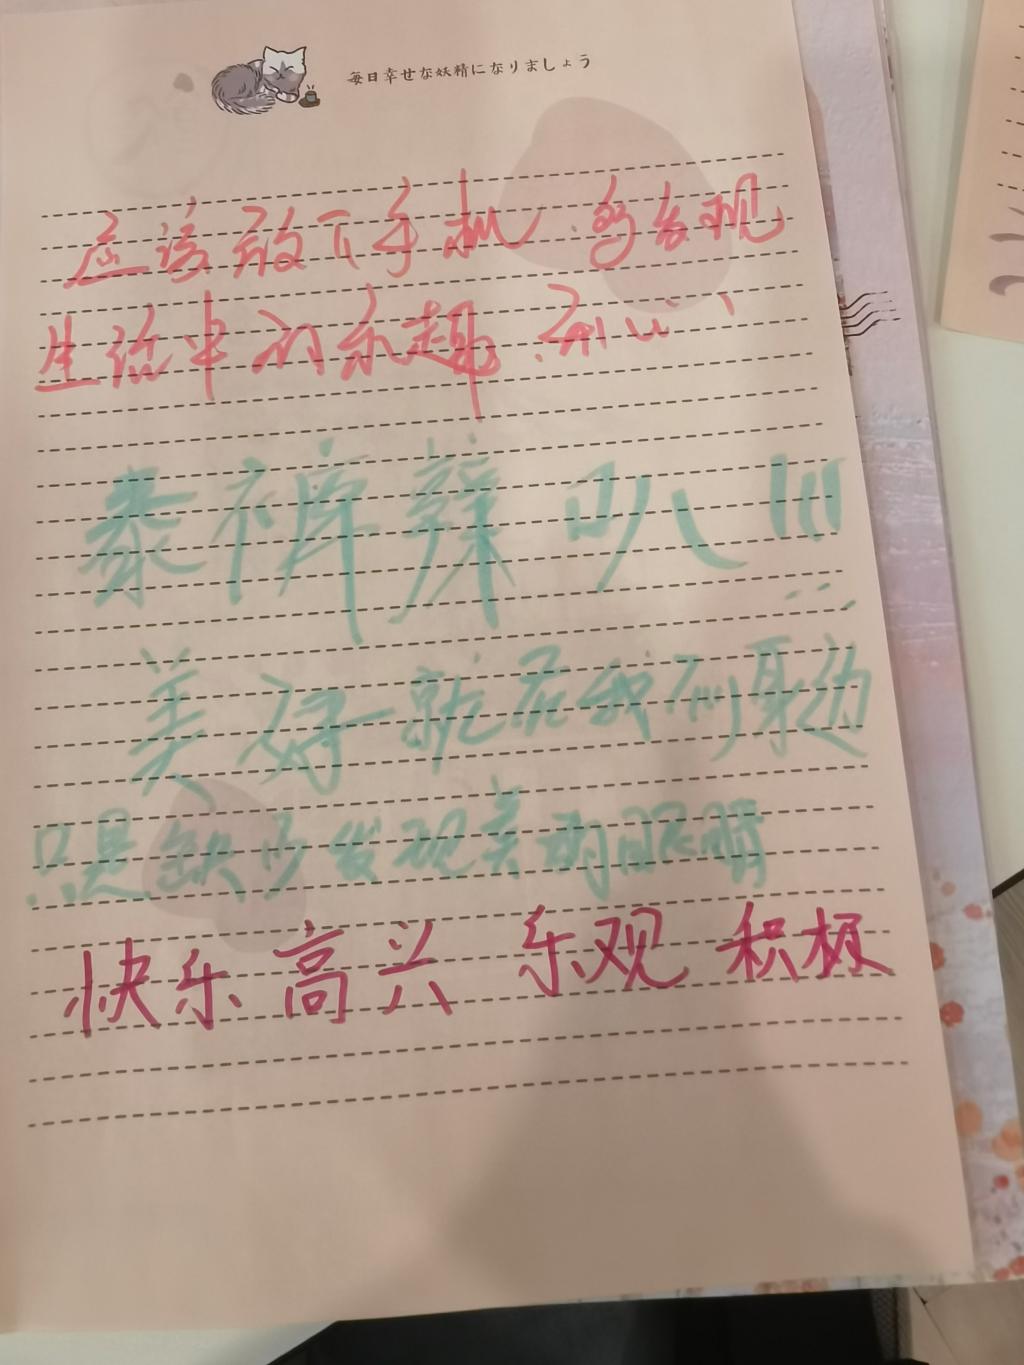 毎日幸せな妖精になりましょう
应该放下手机,多去发现
生活中的乐趣,
泰裤辣 !!!
美好就在我们身边
只是缺少发现美的眼睛
快乐 高兴 乐观 积极